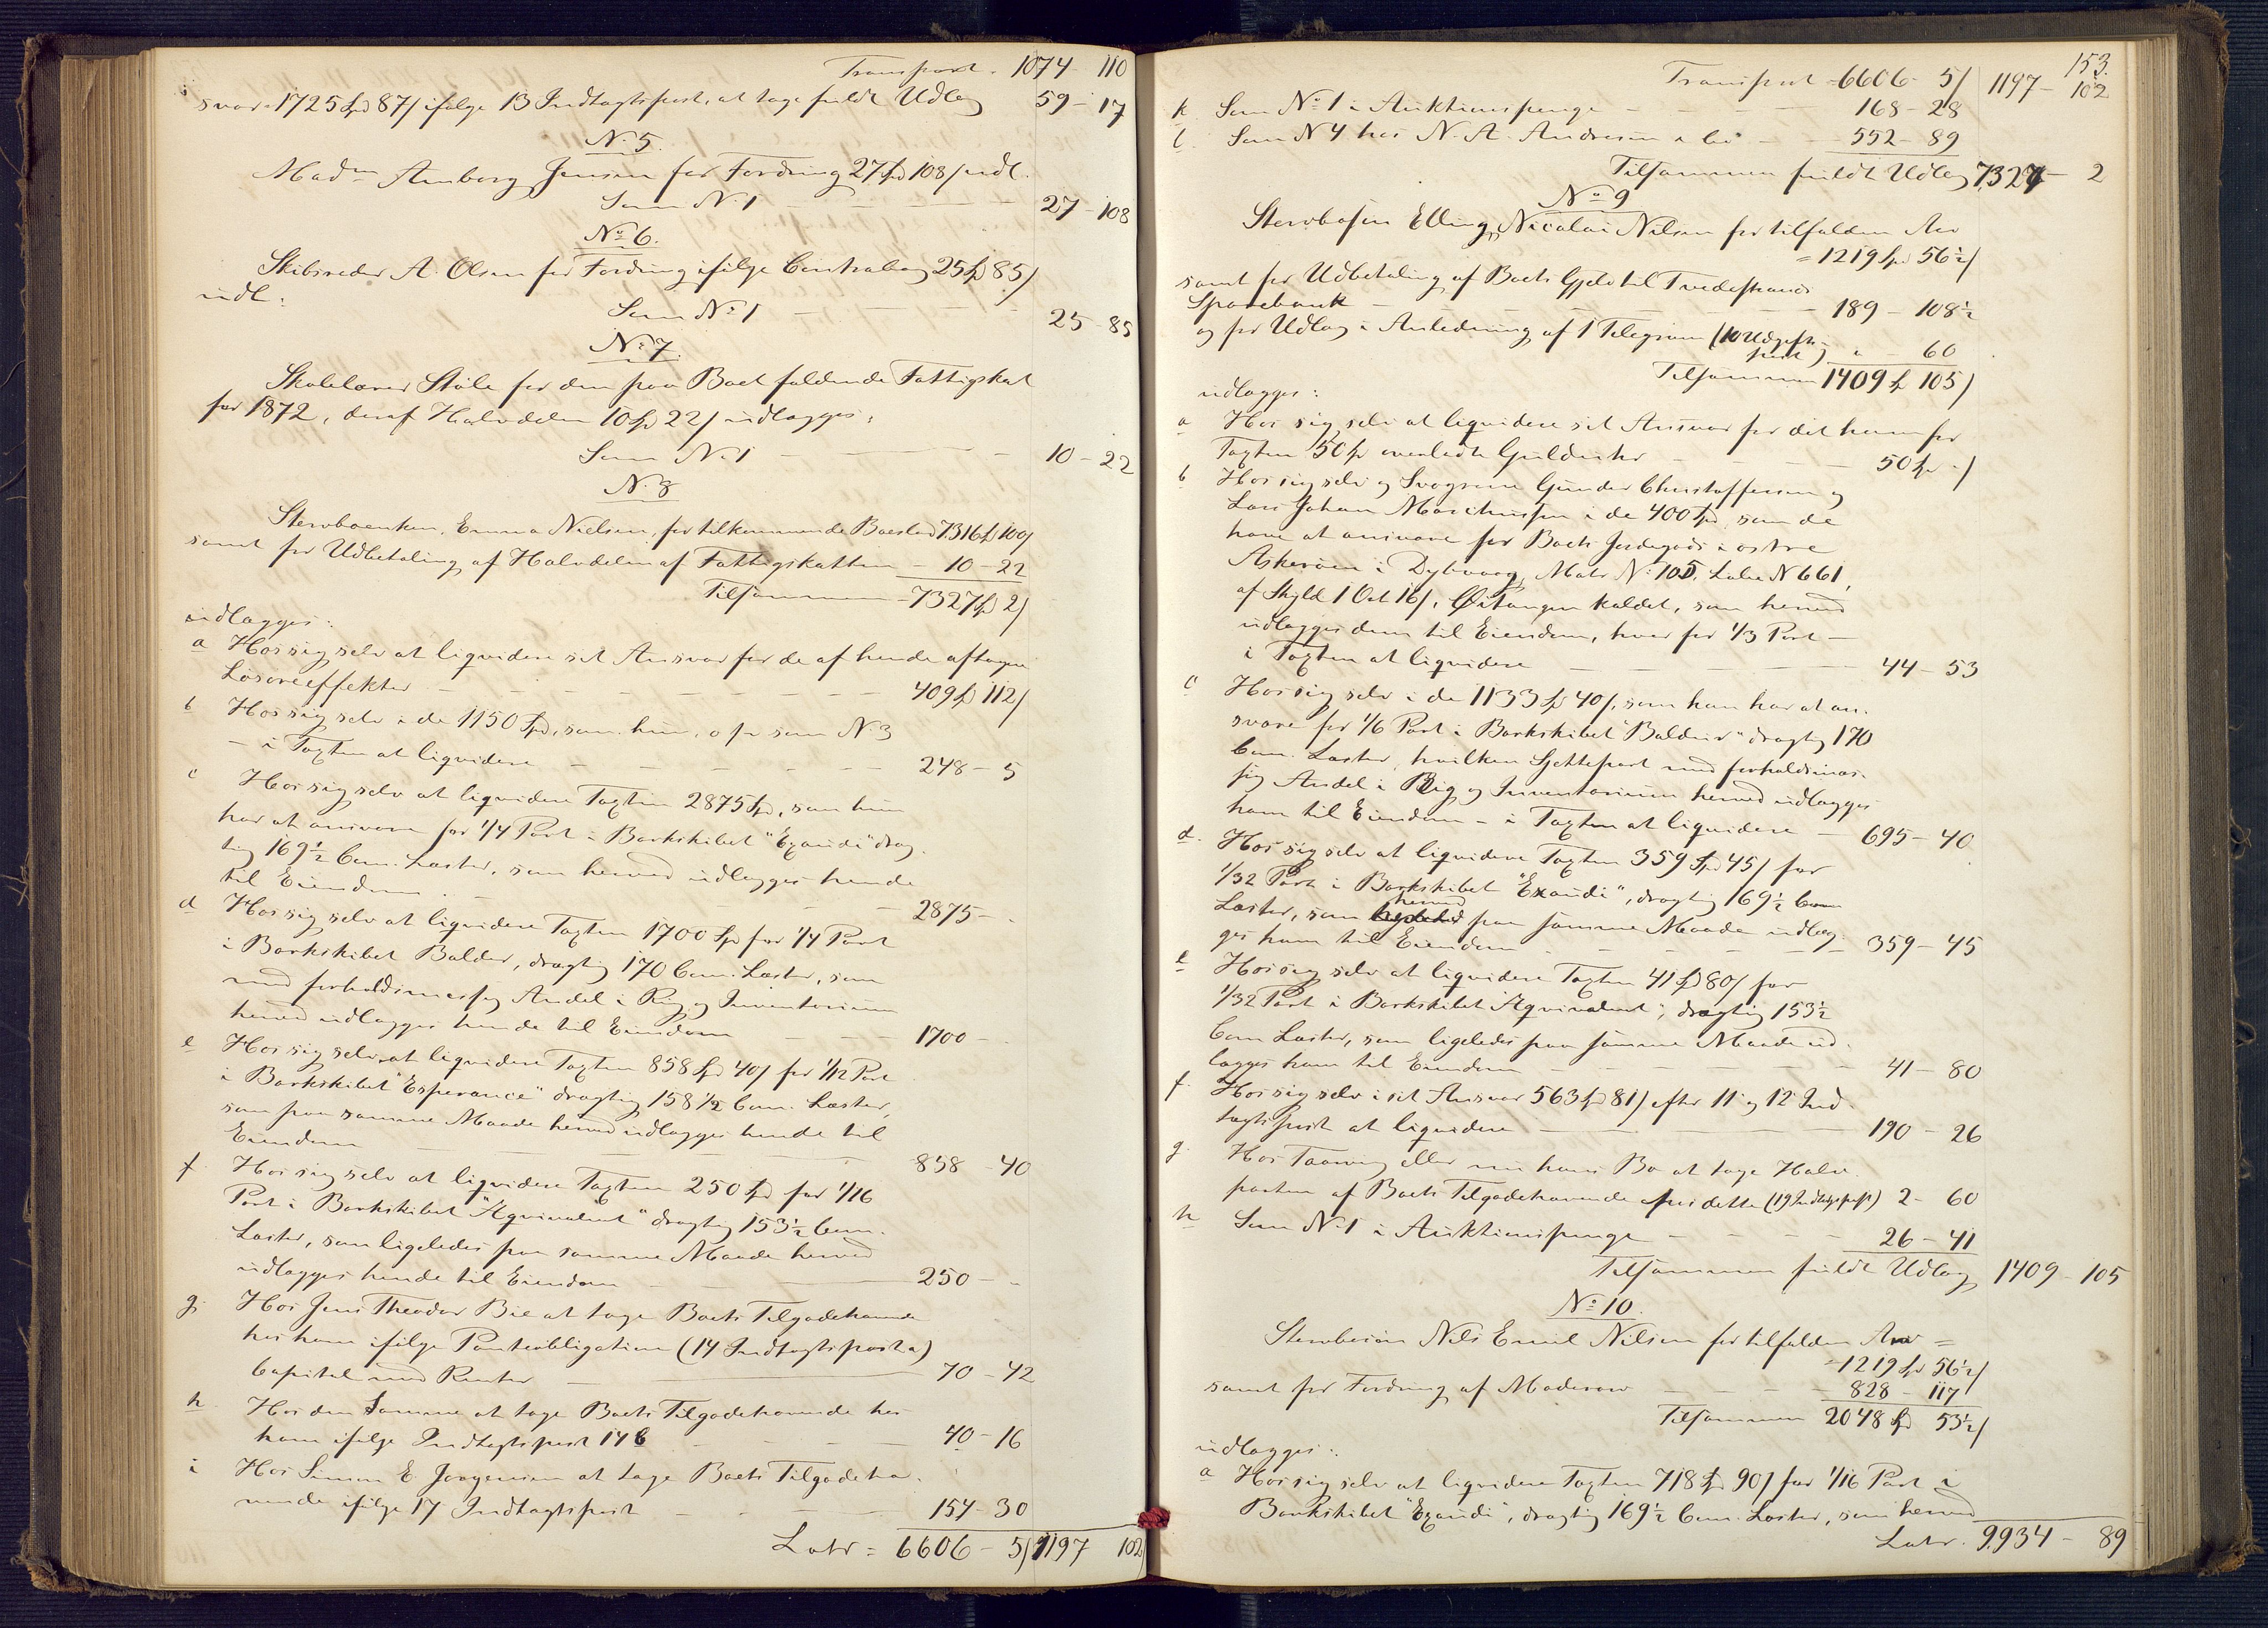 Transport - 1074 - 110
svare 1725 Spd 87/ ifølge 13 Indtægtspost, at tage fuldt Udlæg 59 - 17
N. 5.
Madm Amborg Jensen for Fordring 27 Spd 108/ udl.
Som N. 1 - 27 - 108
No 6.
Skibsreder A. Olsen for Fordring ifølge Contrabog 25 Spd 85/
udl:
Som No 1 - 25 - 85
No 7.
Skolelærer Støle for den paa Boet faldende Fattigskat
for 1872, deraf Halvdelen 10 Spd 22/ udlægges:
Som No 1 - 10 - 22
N. 8
Stervboenken, Emma Nielsen, for tilkommende Boeslod 7316 Spd 100/
samt for Udbetaling af Halvdelen af Fattigskatten - 10 - 22
Tilsammen - 7327 Spd 2/
udlægges:
a Hos sig selv at liqvidere sit Ansvar for de af hende aftagne
Løsøreeffekter - 409 Spd 112/
b Hos sig selv i de 1150 Spd, som hun, o fr som N. 3
- i Taxten at liqvidere - 248 - 5
c Hos sig selv at liqvidere Taxten 2875 Spd, som hun
har at ansvare for 1/4 Part i Barkskibet "Exaudi" dræg-
tig 169½ Com. Læster, som herved udlægges hende
til Eiendom - 2875 -
d Hos sig selv at liqvidere Taxten 1700 Spd for 1/4 Part
i Barkskibet Balder, drægtig 170 Com. Læster, som
med forholdsmæssig Andel i Rig og Inventarium
herved udlægges hende til Eiendom - 1700 -
e Hos sig selv at liqvidere Taxten 858 Spd 40/ for 1/12 Part
i Barkskibet "Esperance" drægtig 158 1/2 Com. Læster,
som paa samme Maade herved udlægges hende til
Eiendom - 858 - 40
f Hos sig selv at liqvidere Taxten 250 Spd for 1/16
Part i Barkskibet "Æqvivalent" drægtig 153½ Com.
Læster, som ligeledes paa samme Maade herved
udlægges hende til Eiendom - 250 -
g. Hos Jens Theodor Bie at tage Boets Tilgodehavende
hos ham ifølge Panteobligation (14 Indtægtspost a)
Capital med Renter - 70 - 42
h. Hos den Samme at tage Boets Tilgodehavende hos
ham ifølge Indtægtspost 14 b - 40 - 16
i Hos Simon E. Jørgensen at tage Boets Tilgodeha-
vende ifølge 17 Indtægtspost - 154 - 30
Latr = 6606 - 5/ 1197 102
153.
Transport - 6606 - 5/ 1197 - 102
k Som No 1 i Auktionspenge - 168 - 28
l. Som N 4 hos N. A. Andresen & Co - 552 - 89
Tilsammen fuldt Udlæg 7327 - 2
No 9
Stervbosøn Elling Nicolai Nilsen for tilfalden Arv
= 1219 Spd 56½/
samt for Udbetaling af Boets Gjeld til Tvedestrands
Sparebank - 189 - 108½
og for Udlæg i Anledning af 1 Telegram (10 Udgifts-
post) " - 60
Tilsammen 1409 Spd 105/
udlægges:
a Hos sig selv at liqvidere sit Ansvar for det ham for
Taxten 50 Spd overladte Gulduhr - 50 Spd - /
b Hos sig selv og Svogrene Gunder Christoffersen og
Lars Johan Marthinsen i de 400 Spd, som de
have at ansvare for Boets Jordegods i østre
Askerøen i Dybvaag, Matr. N. 105, Løbe N 661,
af Skyld 1 Ort 16/, Øitangen kaldet, som herved
udlægges dem til Eiendom, hver for 1/3 Part -
i Taxten at liqvidere - 44 - 53
c Hos sig selv i de 1133 Spd 40/, som han har at an-
svare for 1/6 Part i Barkskibet "Balder" drægtig 170
Com. Læster, hvilken Sjettepart med forholdsmæs-
sig Andel i Rig og Inventarium herved udlægges
ham til Eiendom - i Taxten at liqvidere - 695 - 40
d. Hos sig selv at liqvidere Taxten 359 Spd 45/ for
1/32 Part i Barkskibet "Exaudi", drægtig 169½ Com
Læster, som herved paa samme Maade udlæg-
ges ham til Eiendom - 359 - 45
e Hos sig selv at liqvidere Taxten 41 Spd 80/ for
1/32 Part i Barkskibet "Æqvivalent", drægtig 153½
Com Læster, som ligeledes paa samme Maade ud-
lægges ham til Eiendom - 41 - 80
f Hos sig selv i sit Ansvar 563 Spd 81/ efter 11 og 12 Ind-
tægtspost at liqvidere - 190 - 26
g. Hos Taaning eller nu hans Bo at tage Halv-
parten af Boets Tilgodehavende hos dette (19 Indtægtspost) 2 - 60
h Som N. 1 i Auktionspenge - 26 - 41
Tilsammen fuldt Udlæg 1409 - 105
No 10.
Stervbosøn Nils Emil Nilsen for tilfalden Arv =
= 1219 Spd 56½/
samt for Fordring af Moderarv - 828 - 117
Tilsammen 2048 Spd 53½/
udlægges:
a Hos sig selv at liqvidere Taxten 718 Spd 90/ for 1/16 Part i
Barkskibet "Exaudi", drægtig 169½ Com. Læster, som herved
Latr. 9934 - 89